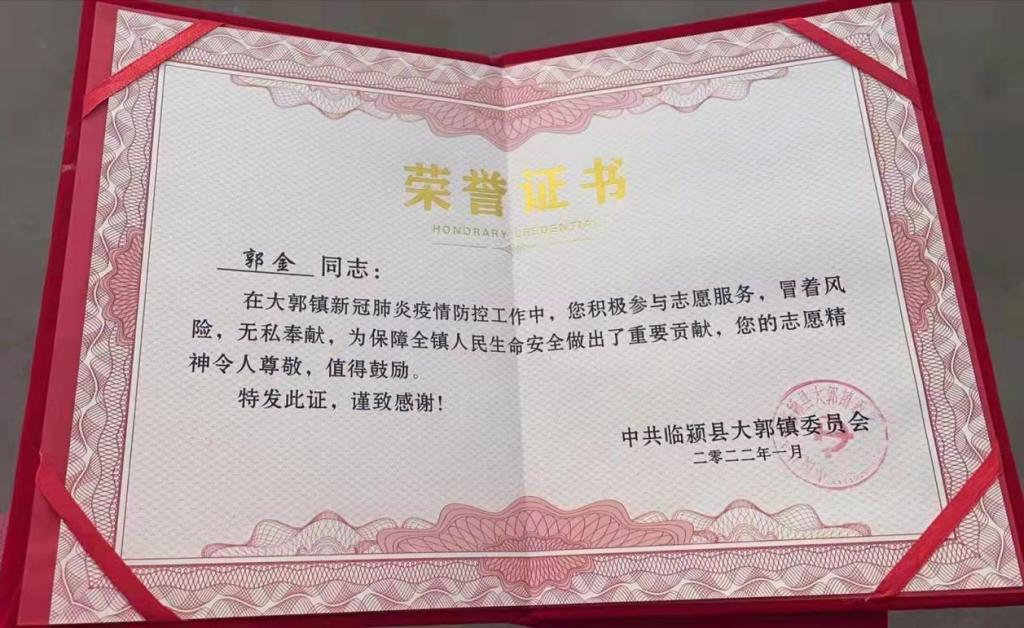 荣誉证书
HONORARY CREDENTIAL
郭金 同志：
在大郭镇新冠肺炎疫情防控工作中，您积极参与志愿服务，冒着风
险，无私奉献，为保障全镇人民生命安全做出了重要贡献，您的志愿精
神令人尊敬，值得鼓励。
特发此证，谨致感谢！
中共临颍县大郭镇委员会
二零二二年一月